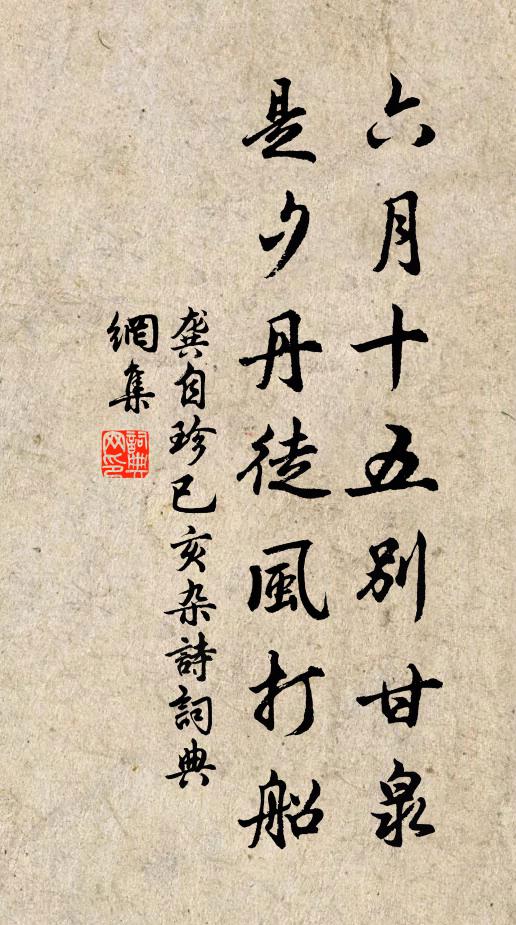 六月十五別甘泉
是夕丹徒風打船
龔自珍己亥杂詩詞典
網集
詞典網印